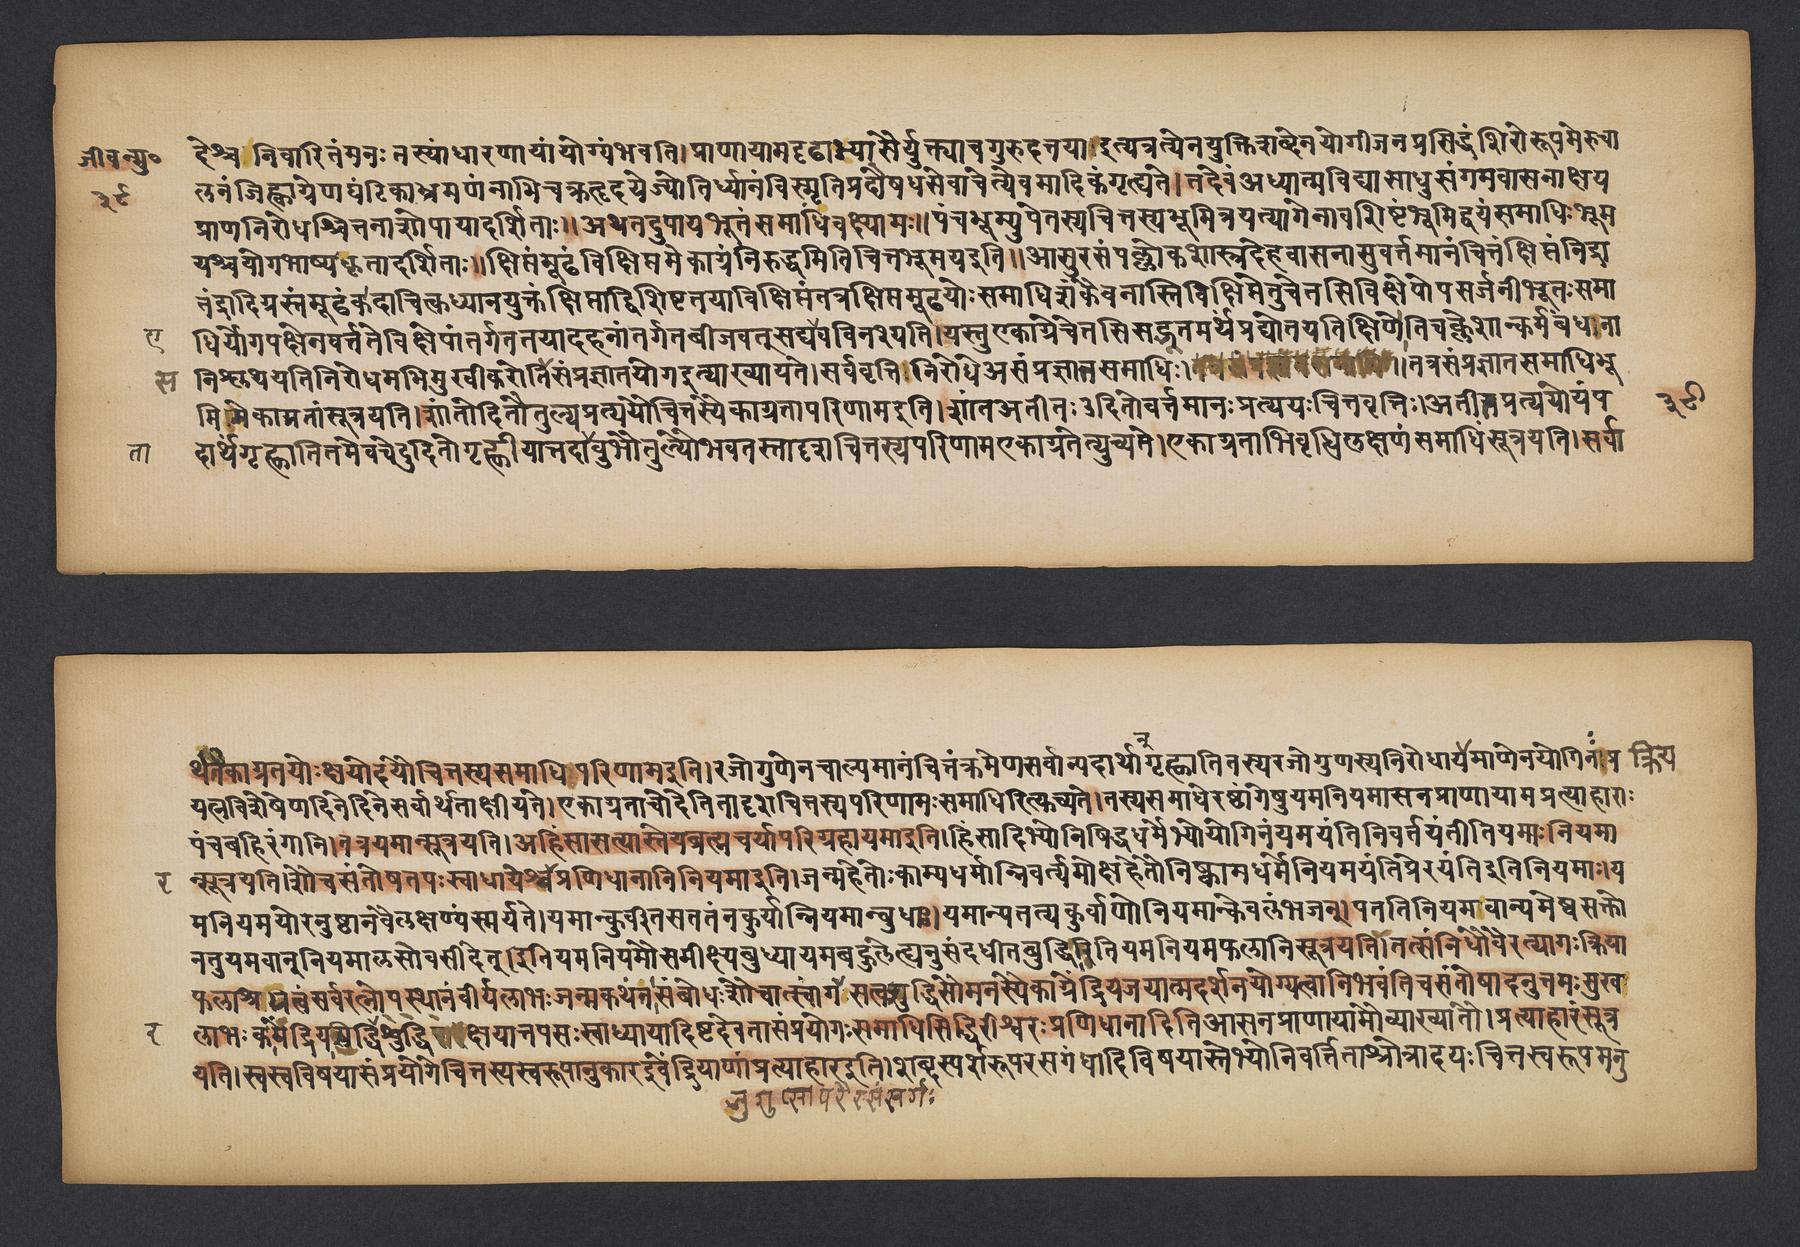 जीवन्मु०
देश्च निवारितं मनः तस्यां धारणायां योग्यं भवति। प्राणायामदृढाभ्यासैर्युक्त्या च गुरुदत्तया। इत्यत्रत्येन युक्तिशब्देन योगीजनप्रसिद्धं शिरोरूपमेरुचा
३८
लनं जिह्वाग्रेण घंटिकाभ्रमणं नाभिचक्रहृदये ज्योतिर्ध्यानं विस्मृतिप्रदौषधसेवा चेत्येवमादिकं गृह्यते। तदेवं अध्यात्मविद्यासाधुसंगमवासनाक्षय
प्राणनिरोधश्चित्तनाशोपाया दर्शिताः॥ अथ तदुपायभूतं समाधिं वक्ष्यामः॥ पंचभूम्युपेतस्य चित्तस्य भूमित्रयत्यागेनावशिष्टं भूमिद्वयं समाधिः भूम
यश्च योगभाष्यकृता दर्शिताः॥ क्षिप्तं मूढं विक्षिप्तमेकाग्रं निरुद्धमिति चित्तभूमय इति॥ आसुरसंपल्लोकशास्त्रदेहवासनासु वर्त्तमानं चित्तं क्षिप्तं निद्रा
तंद्रादिग्रस्तं मूढं कदाचित्कध्यानयुक्तं क्षिप्ताद्विशिष्टतया विक्षिप्तं तत्र क्षिप्तमूढयोः समाधिशंकैव नास्ति विक्षिप्ते तु चेतसि विक्षेपोपसर्जनीभूतः समा
ए
धिर्योगपक्षे न वर्त्तते विक्षेपांतर्गततया दहनांतर्गतबीजवत् सद्य व विनश्यति। यस्तु एकाग्रे चेतसि सद्भूतमर्थं प्रद्योतयति क्षिणोति च क्लेशान् कर्मबंधाना
स
निश्लथयति निरोधमभिमुखीकरोति संप्रज्ञातयोग इत्याख्यायते। सर्ववृत्तिनिरोधे असंप्रज्ञातसमाधिः। ॥ तत्र संप्रज्ञातसमाधिभू
मिमेकाग्रतां सूत्रयति। शांतोदितौ तुल्यप्रत्ययो चित्तस्येकाग्रतापरिणाम इति। शांत अतीतः उदितो वर्त्तमानः प्रत्ययः चित्तवृत्तिः। अतीतप्रत्ययो यं प
ता
दार्थं गृह्णाति तमेव चेदुदितो गृह्णीयात्तदा वुभौ तुल्यौ भवतस्तादृशचित्तस्य परिणाम एकाग्रतेत्युच्यते। एकाग्रताभिवृद्धिलक्षणं समाधिं सूत्रयति। सर्वा
र्थतैकाग्रतयोः क्षयोदयौ चित्तस्य समाधिपरिणाम इति। रजोगुणेन चाल्यमानं चित्तं क्रमेण सर्वान्पदार्थान् गृह्णाति तस्य रजोगुणस्य निरोधाय माणेन योगिनां प्र क्रिय
यत्नविशेषेण दिने दिने सर्वार्थता क्षीयते। एकाग्रता चोदेति तादृशचित्तस्य परिणामः समाधिरित्युच्यते। तस्य समाधेरष्टांगेषु यमनियमासनप्राणायामप्रत्याहाराः
पंच बहिरंगानि। तत्र यमान्सूत्रयति। अहिंसासत्यास्तेयब्रह्मचर्यापरिग्रहा यमा इति। हिंसादिभ्यो निषिद्धधर्मेभ्यो योगिनं यमयंति निवर्त्तयंतीति यमाः नियमा
र
न्सूत्रयति। शौचसंतोषतपःस्वाध्यायेश्वप्रणिधानानि नियमा इति। जन्महेतोः काम्यधर्मान्निवर्त्य मोक्षहेतौ निष्कामधर्मे नियमयंति प्रेरयंति इति नियमाः। य
मनियमयोरनुष्ठानवैलक्षण्यं स्मर्यते। यमान्कुर्वीत सततं न कुर्यान्नियमान्बुधः। यमान्पतत्यकुर्वाणो नियमान्केवलं भजन्। पतति नियमवान्यमेष्वसक्तो
न तु यमवान् नियमालसोवसीदेत्। इति यमनियमौ समीक्ष्य बुध्या यमबहुलेष्वनुसंदधीत बुद्धिमिति यमनियमफलानि सूत्रयति। तत्संनिधौ वैरत्यागः क्रिया
फलाश्रयत्वं सर्वरत्नोपस्थानं वीर्यलाभः जन्मकथंतासंबोधः शौचात्स्वांग सत्वशुद्धिसौमनस्यैकाग्र्येंद्रियजयात्मदर्शनयोग्यत्वानि भवंति च संतोषादनुत्तमः सुख
र
लाभः कायेंद्रियसिद्धिशुद्धिक्षयात्तपसः स्वाध्यायादिष्टदेवतासंप्रयोगः समाधिसिद्धिरीश्वरः प्रणिधानादिति आसनप्राणायामौ व्याख्यातौ। प्रत्याहारं सूत्र
यति। स्वस्वविषयासंप्रयोगे चित्तस्य स्वरूपानुकार इवेंद्रियाणां प्रत्याहार इति। शब्दस्पर्शरूपरसगंधादिविषयास्तेभ्यो निवर्त्तिताश्रोत्रादयः चित्तस्वरूपमनु
जुगुप्सा परैरसंसर्गः